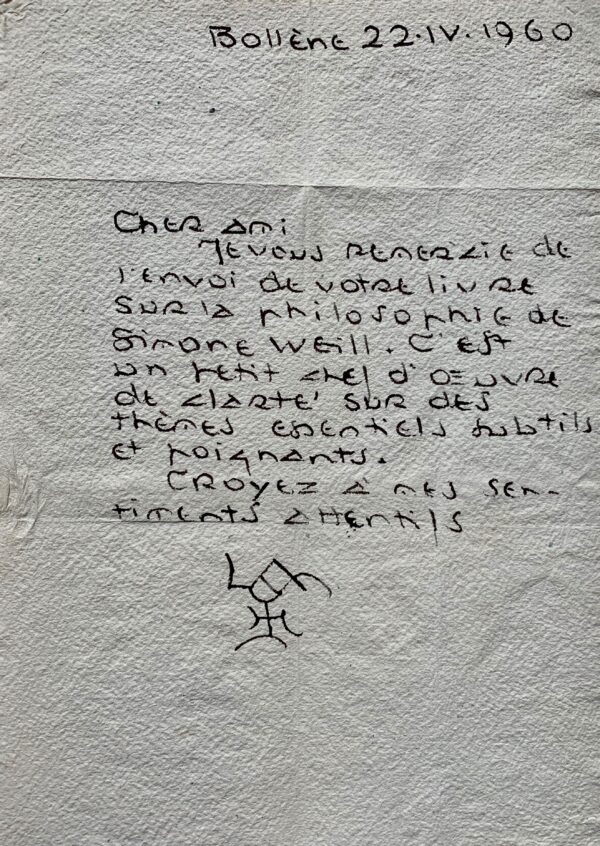 Bollène 22.IV.1960
Cher ami
Je vous remerzie de
l'envoi de votre livre
sur la philosophie de
Simone Weill. C'est
un petit chef d'œuvre
de clarté sur des
thèmes essentiels subtils
et poignants.
Croyez à mes sen-
timents attentifs